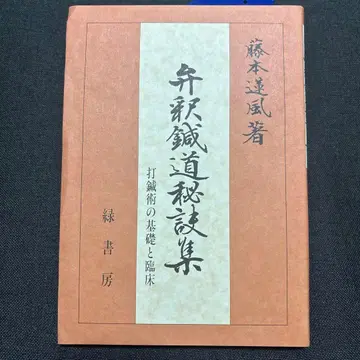 藤本蓮風著
弁釈鍼道秘訣集
打鍼術の基礎と臨床
緑書房